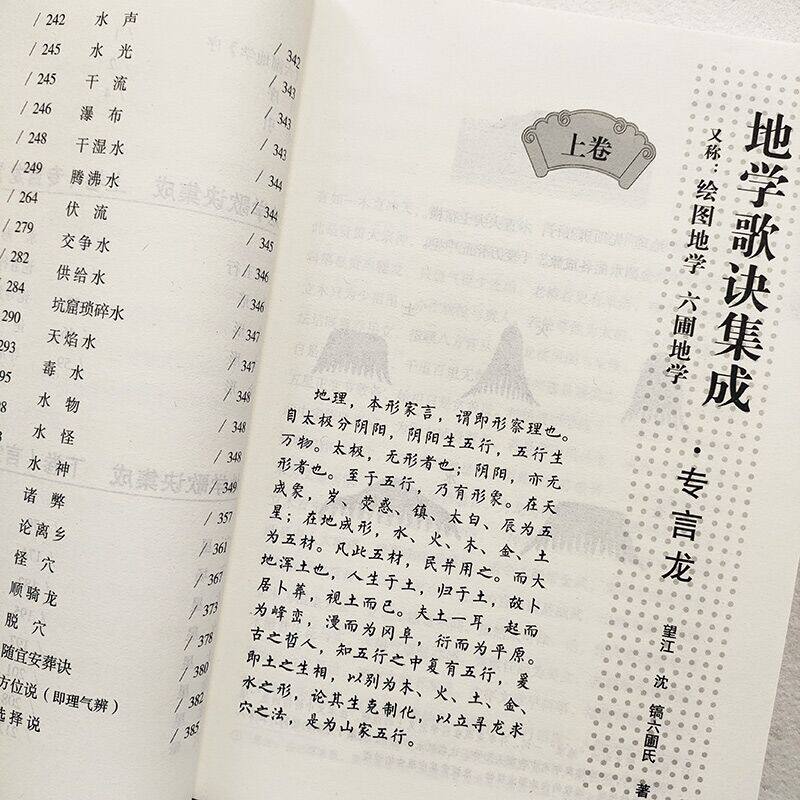 / 242 水声 / 342
/ 245 水光 / 343
/ 245 干流 / 343
/ 246 瀑布 / 343
/ 248 干湿水 / 344
/ 249 腾沸水 / 344
/ 264 伏流 / 345
/ 279 交争水 / 346
/ 282 供给水 / 346
284 坑窟琐碎水 / 347
290 天焰水 / 347
293 毒水 / 348
95 水物 / 348
水怪 / 348
水神 / 349
诸弊 / 357
论离乡 / 361
怪穴 / 367
顺骑龙 / 373
脱穴 / 378
随宜安葬诀 / 380
方位说（即理气辨） / 382
选择说 / 385
地学歌诀集成·专言龙
又称：绘图地学 六圃地学
望江 沈镐六圃氏 著
上卷
地理，本形家言，谓即形察理也。
自太极分阴阳，阴阳生五行，五行生
万物。太极，无形者也；阴阳，亦无
形者也。至于五行，乃有形象。在天
成象，岁、荧惑、镇、太白、辰为五
星；在地成形，水、火、木、金、土
为五材。凡此五材，民并用之。而大
地浑土也，人生于土，归于土，故卜
居卜葬，视土而已。夫土一耳，起而
为峰峦，漫而为冈阜，衍而为平原。
古之哲人，知五行之中复有五行，爰
即土之生相，以别为木、火、土、金、
水之形，论其生克制化，以立寻龙求
穴之法，是为山家五行。